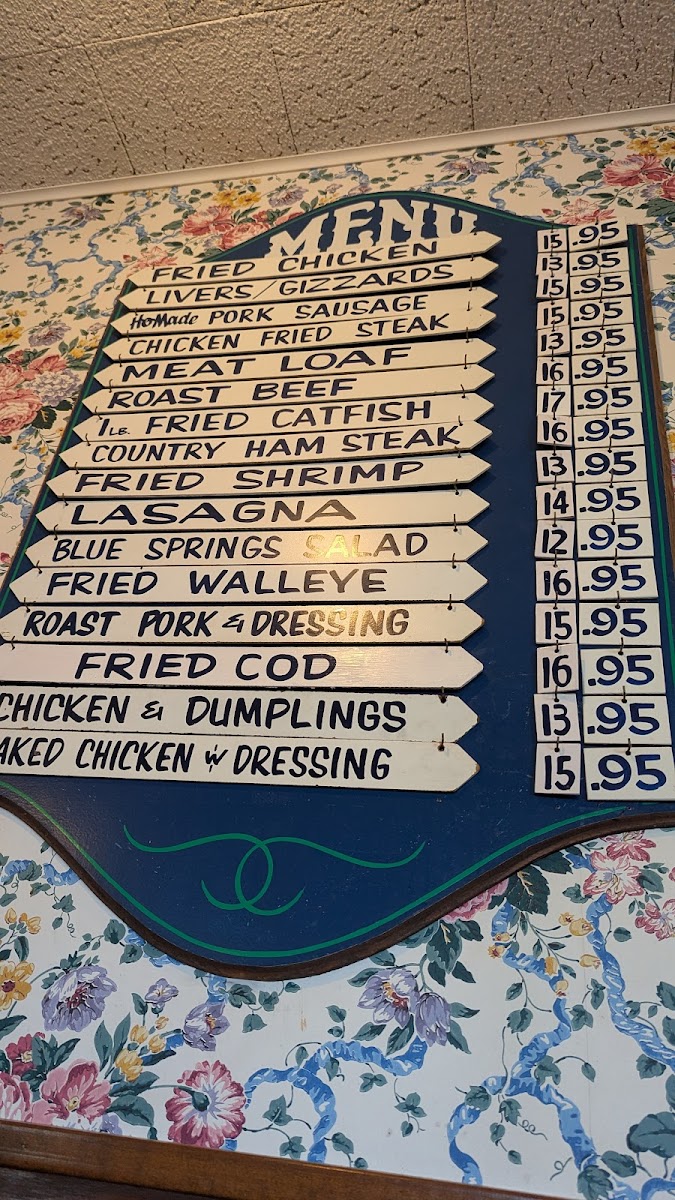 MENU
FRIED CHICKEN 15 .95
LIVERS/GIZZARDS 13 .95
HoMade PORK SAUSAGE 15 .95
CHICKEN FRIED STEAK 15 .95
MEAT LOAF 13 .95
ROAST BEEF 16 .95
1LB. FRIED CATFISH 17 .95
COUNTRY HAM STEAK 16 .95
FRIED SHRIMP 13 .95
LASAGNA 14 .95
BLUE SPRINGS SALAD 12 .95
FRIED WALLEYE 16 .95
ROAST PORK & DRESSING 15 .95
FRIED COD 16 .95
CHICKEN & DUMPLINGS 13 .95
AKED CHICKEN W/ DRESSING 15 .95